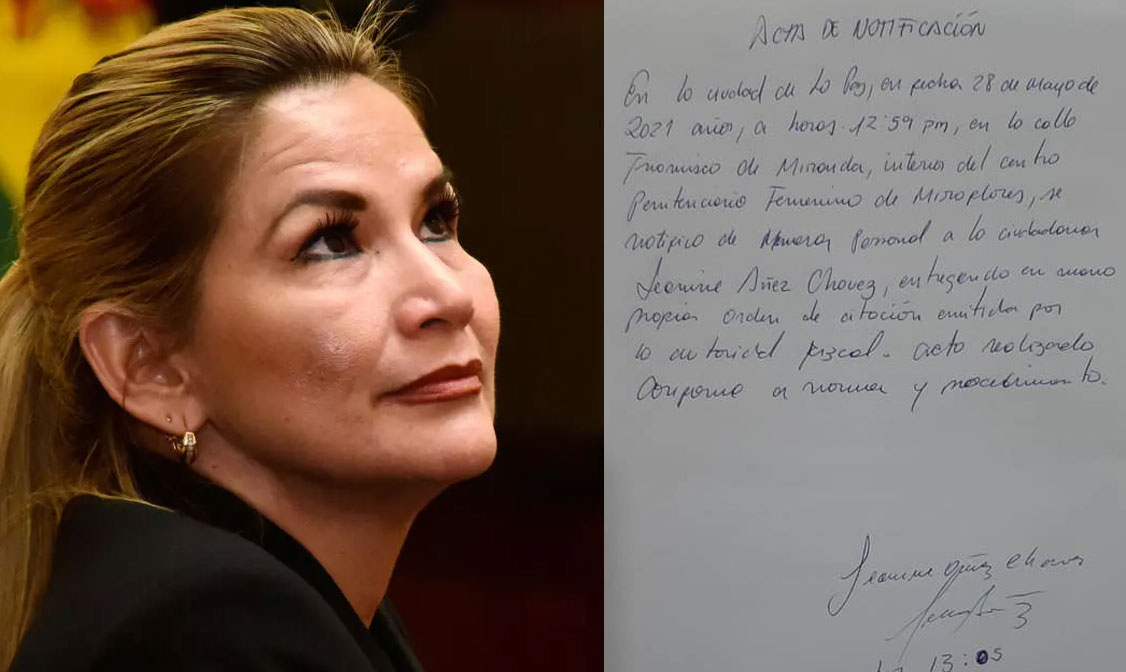 ACTA DE NOTIFICACIÓN
En la ciudad de La Paz, en fecha 28 de mayo de
2021 años, a horas 12:59 pm, en la calle
Francisco de Miranda, interior del centro
Penitenciario Femenino de Miraflores, se
notifico de Manera Personal a la ciudadana
Jeanine Añez Chavez, entregando en mano
propia orden de citación emitida por
la autoridad fiscal. acto realizado
Conforme a norma y procedimiento.
Jeanine Añez Chavez
13:05